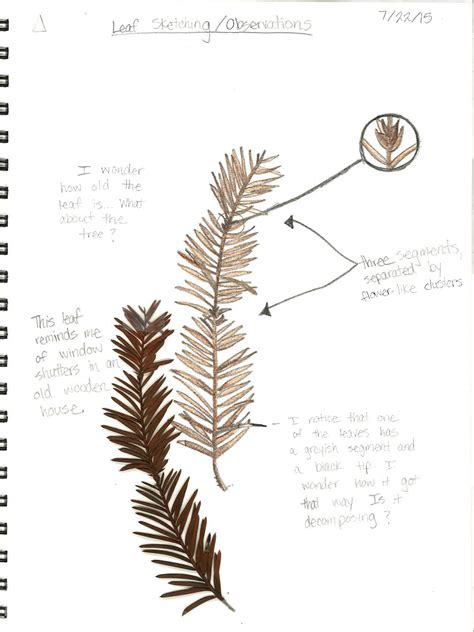 Leaf Sketching/Observations
7/22/15
I wonder
how old the
leaf is... What
about the
tree?
three segments,
separated by
flower-like clusters
This leaf
reminds me
of window
shutters in an
old wooden
house.
I notice that one
of the leaves has
a greyish segment and
a black tip. I
wonder how it got
that way. Is it
decomposing?